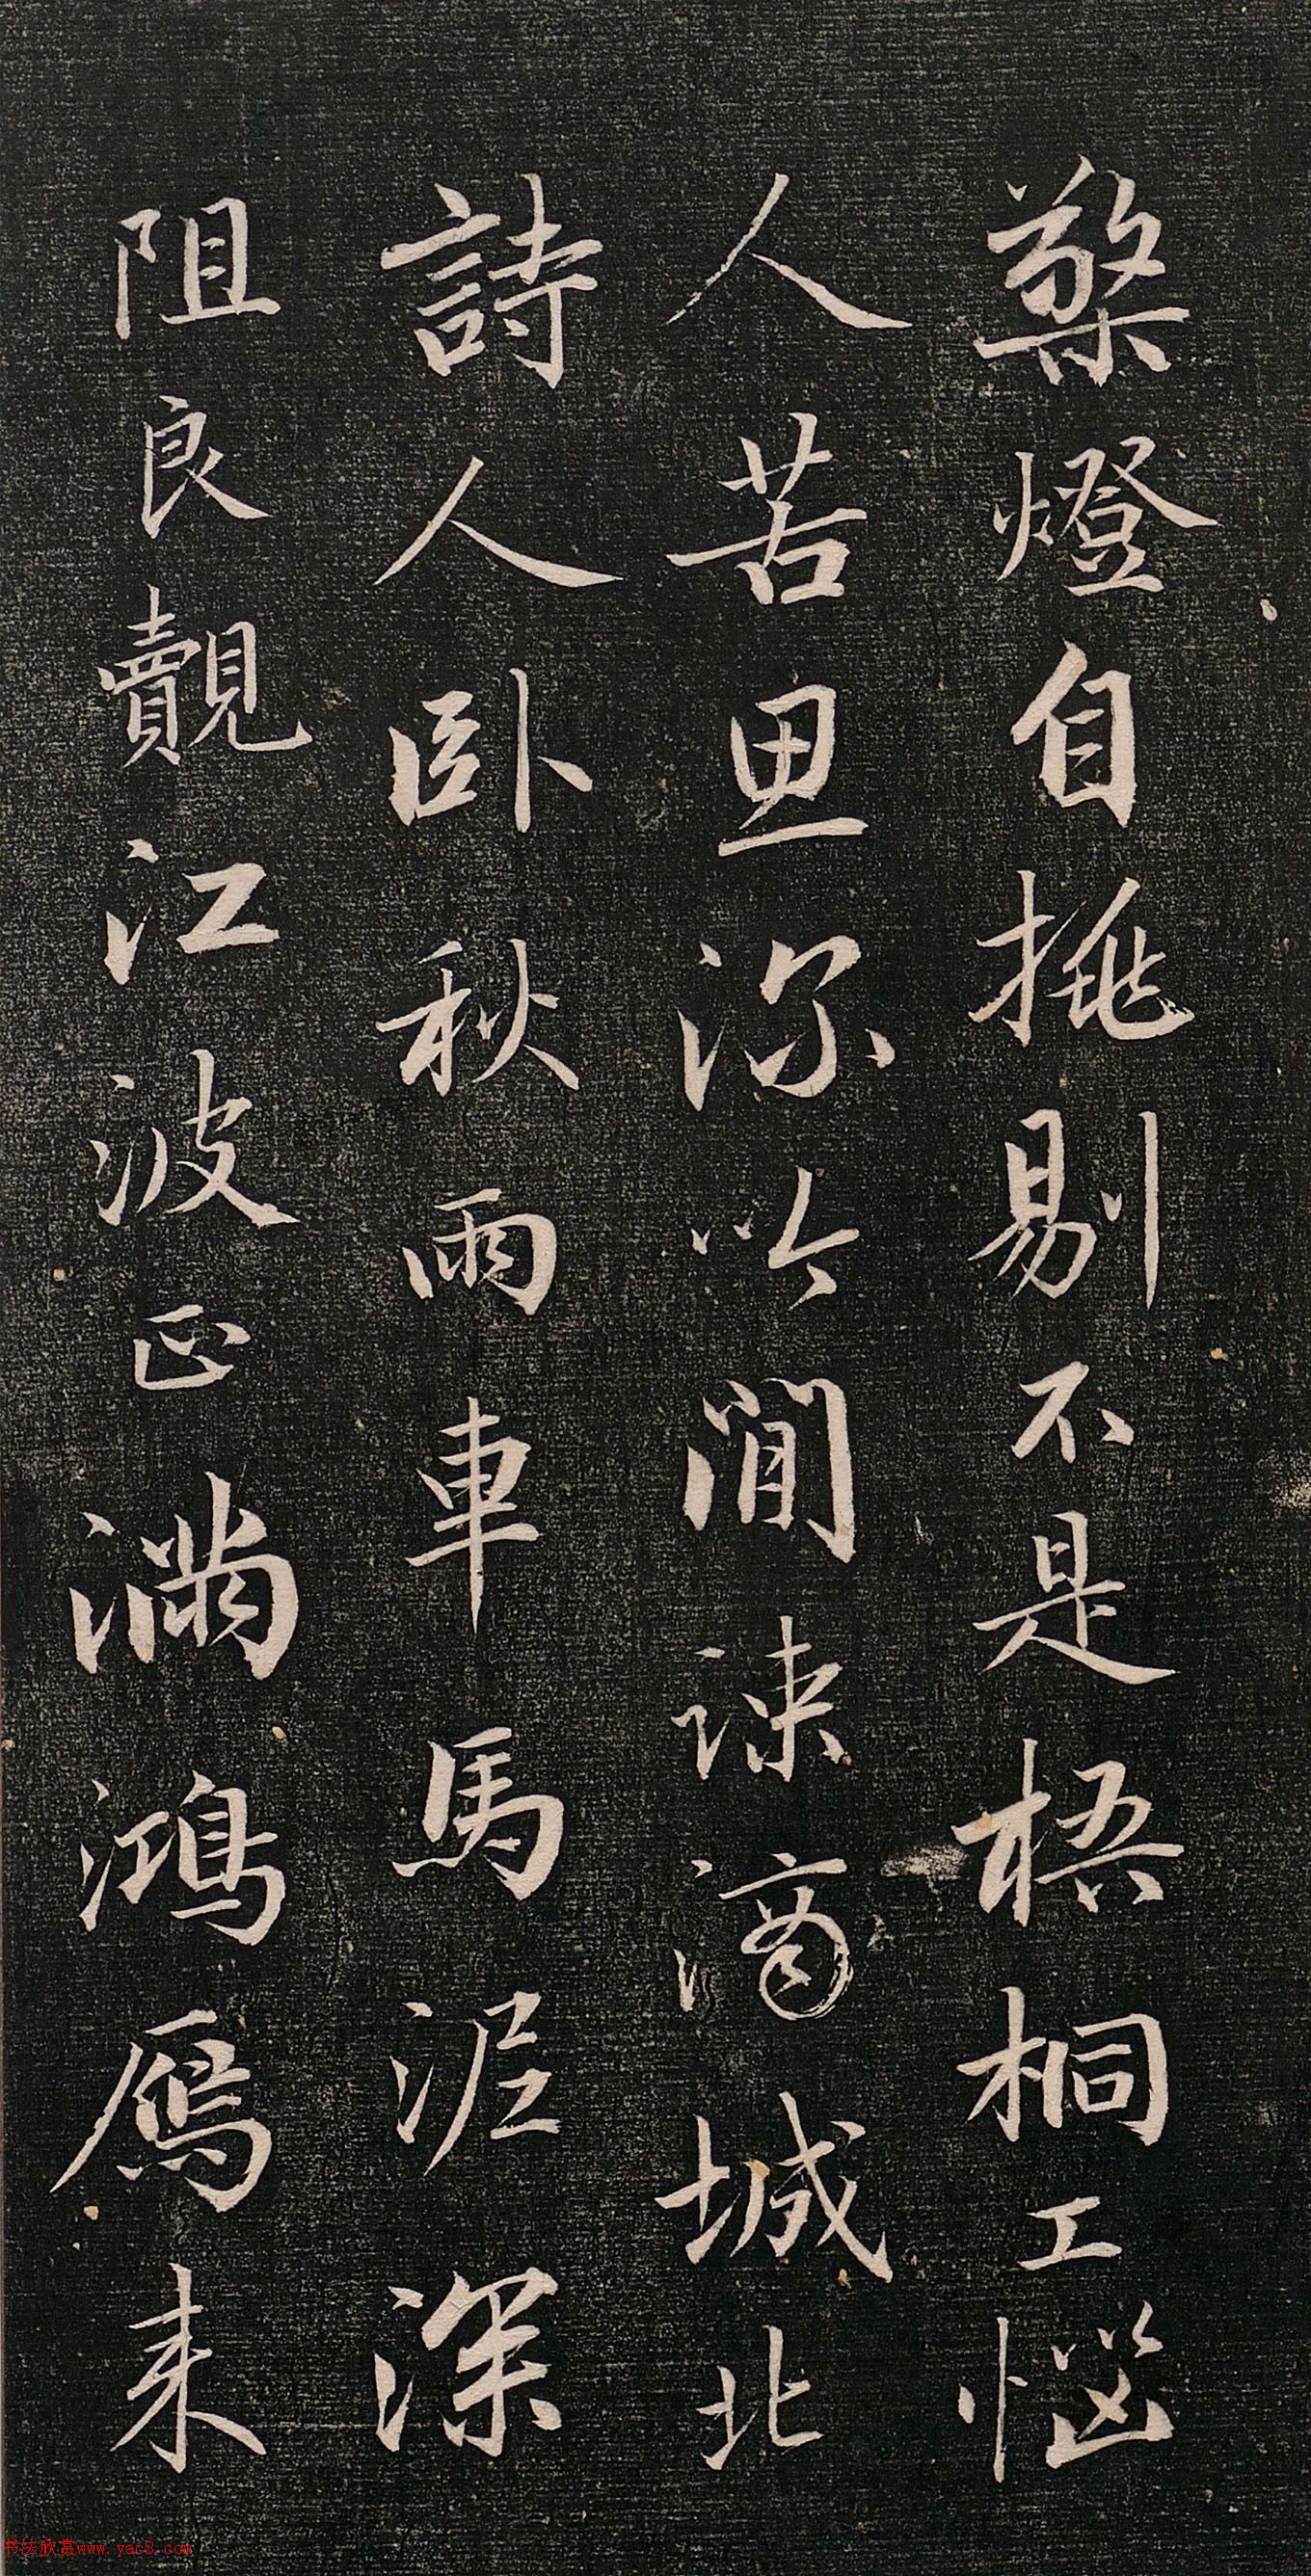 檠燈自挑剔不是梧桐工惱
人苦思深吟澗疎滴城北
詩人卧秋雨車馬泥深
阻良覿江波正滿鴻鴈来
书法欣赏www.yac8.com